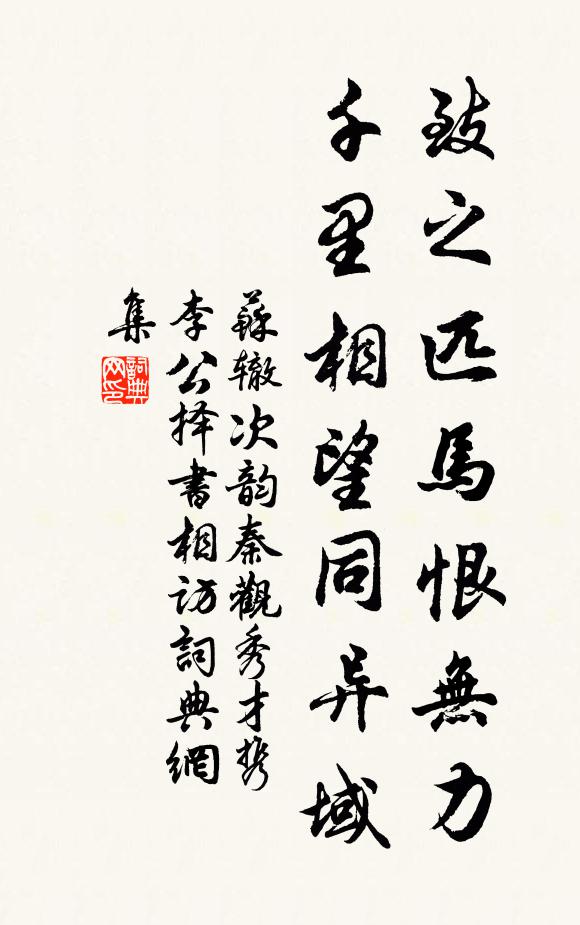 致之匹馬恨無力
千里相望同异域
蘇辙次韵秦觀秀才携
李公择書相访詞典網
集
詞典
网印